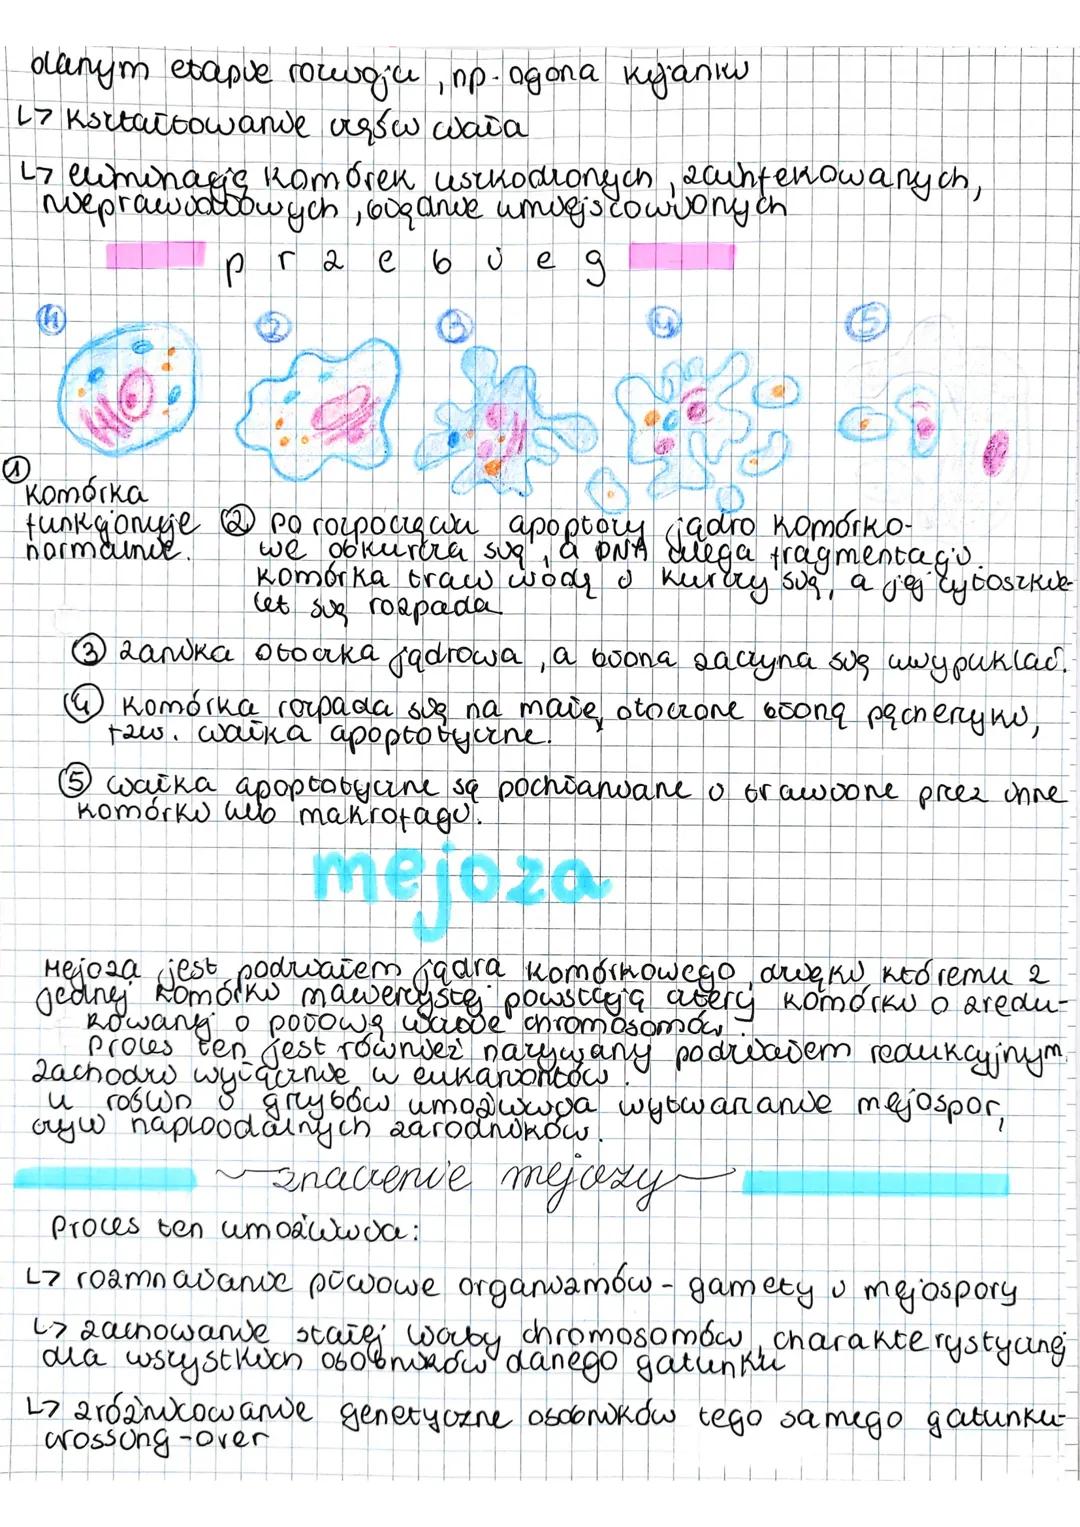 danym etapie rozwoju, np. ogona kijanki
↳ kształtowanie części ciała
↳ eliminację komórek uszkodzonych, zainfekowanych,
nieprawidłowych, błędnie umiejscowionych
przebieg
1 2 3 4 5
① komórka
funkcjonuje
normalnie.
② Po rozpoczęciu apoptozy jądro komórko-
we obkurcza się, a DNA ulega fragmentacji.
Komórka traci wodę i kurczy się, a jej cytoszkie-
let się rozpada
③ zanika otoczka jądrowa, a błona zaczyna się uwypuklać.
④ komórka rozpada się na małe, otoczone błoną pęcherzyki,
tzw. ciałka apoptotyczne.
⑤ ciałka apoptotyczne są pochłaniane i trawione przez inne
komórki lub makrofagi.
mejoza
Mejoza jest podziałem jądra komórkowego, dzięki któremu z
jednej komórki macierzystej powstają cztery komórki o zredu-
kowanej o połowę liczbie chromosomów.
Proces ten jest również nazywany podziałem redukcyjnym.
Zachodzi wyłącznie w eukariontów.
u roślin i grzybów umożliwia wytwarzanie mejospor,
czyli haploidalnych zarodników.
znaczenie mejozy
Proces ten umożliwia:
↳ rozmnażanie płciowe organizmów - gamety i mejospory
↳ zachowanie stałej liczby chromosomów, charakterystycznej
dla wszystkich osobników danego gatunku
↳ zróżnicowanie genetyczne osobników tego samego gatunku-
crossing-over